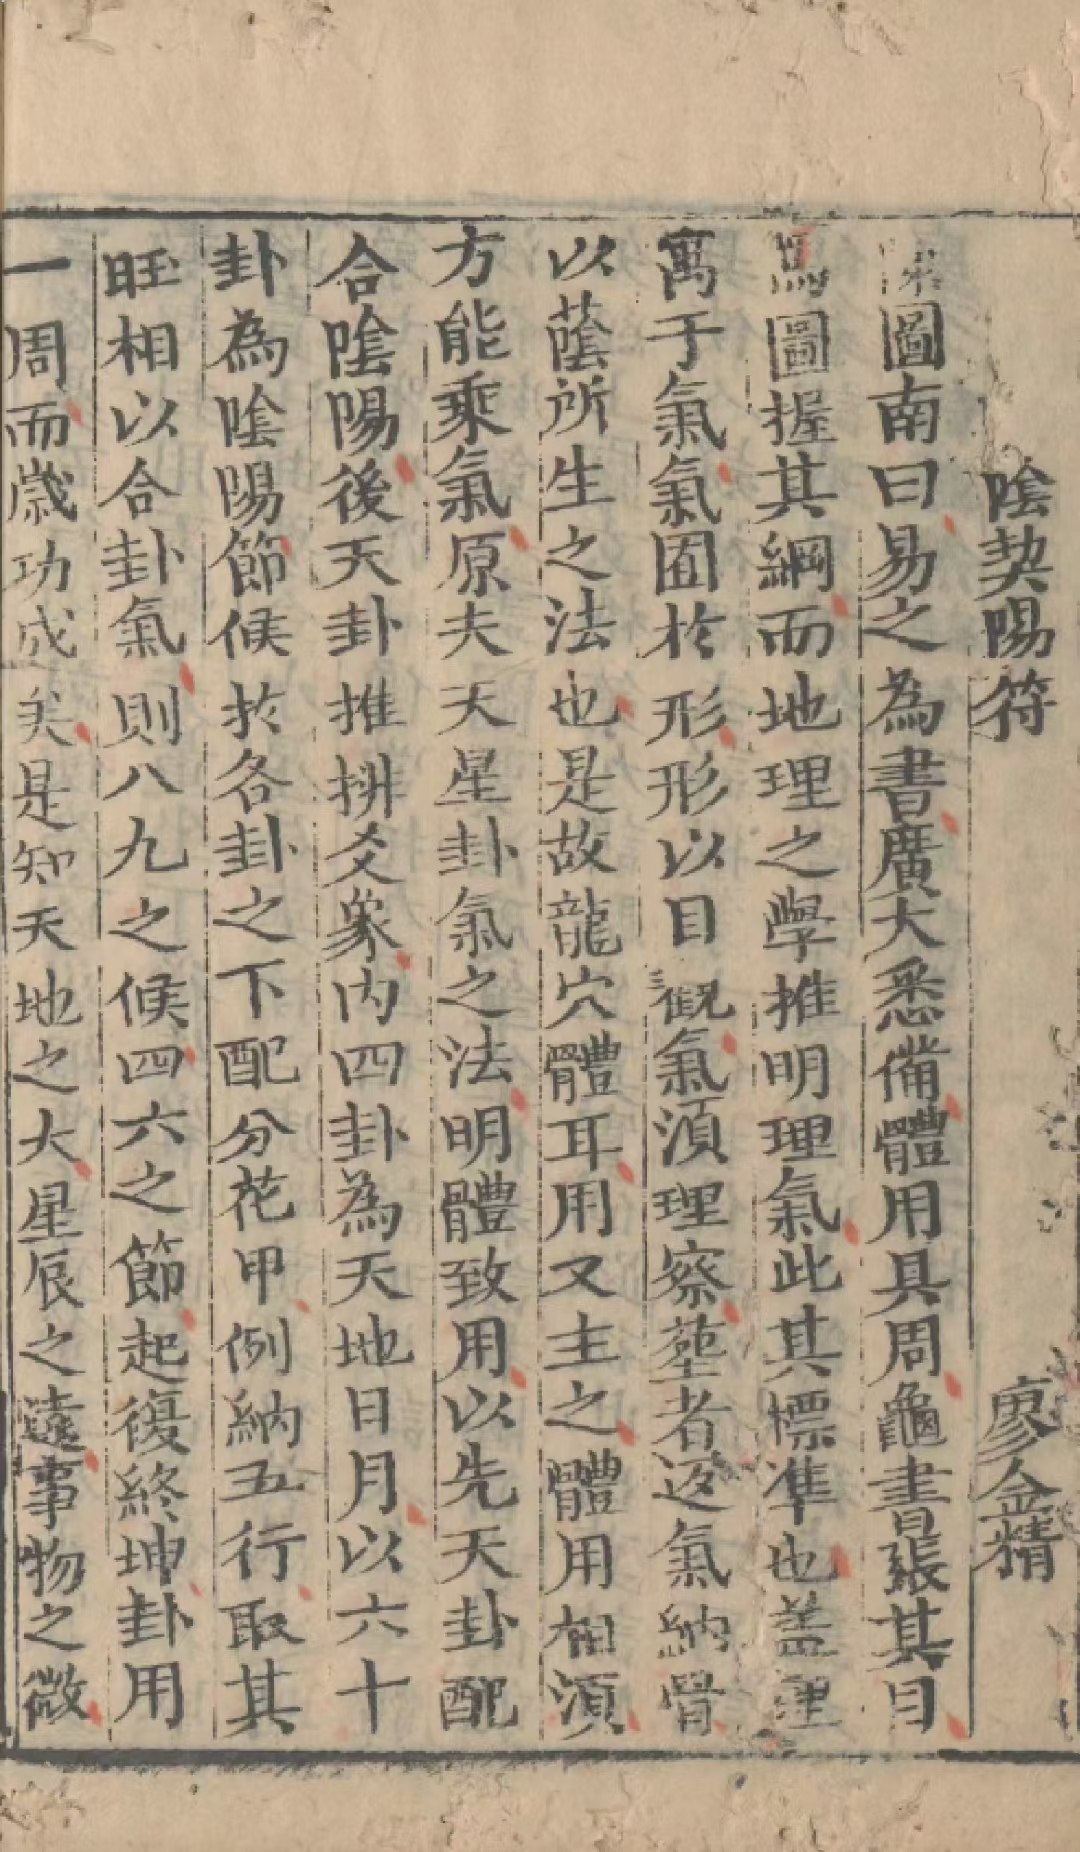 陰契陽符 廖金精
圖南曰易之為書廣大悉備體用具周龜書張其目
馬圖握其綱而地理之學推明理氣此其標準也蓋理
寓于氣氣囿於形形以目觀氣須理察塟者返氣納骨
以蔭所生之法也是故龍穴體耳用又主之體用相須
方能乘氣原夫天星卦氣之法明體致用以先天卦配
合陰陽後天卦推排爻象内四卦為天地日月以六十
卦為陰陽節候於各卦之下配分花甲例納五行取其
旺相以合卦氣則八九之候四六之節起復終坤卦用
一周而歲功成矣是知天地之大星辰之遠事物之微